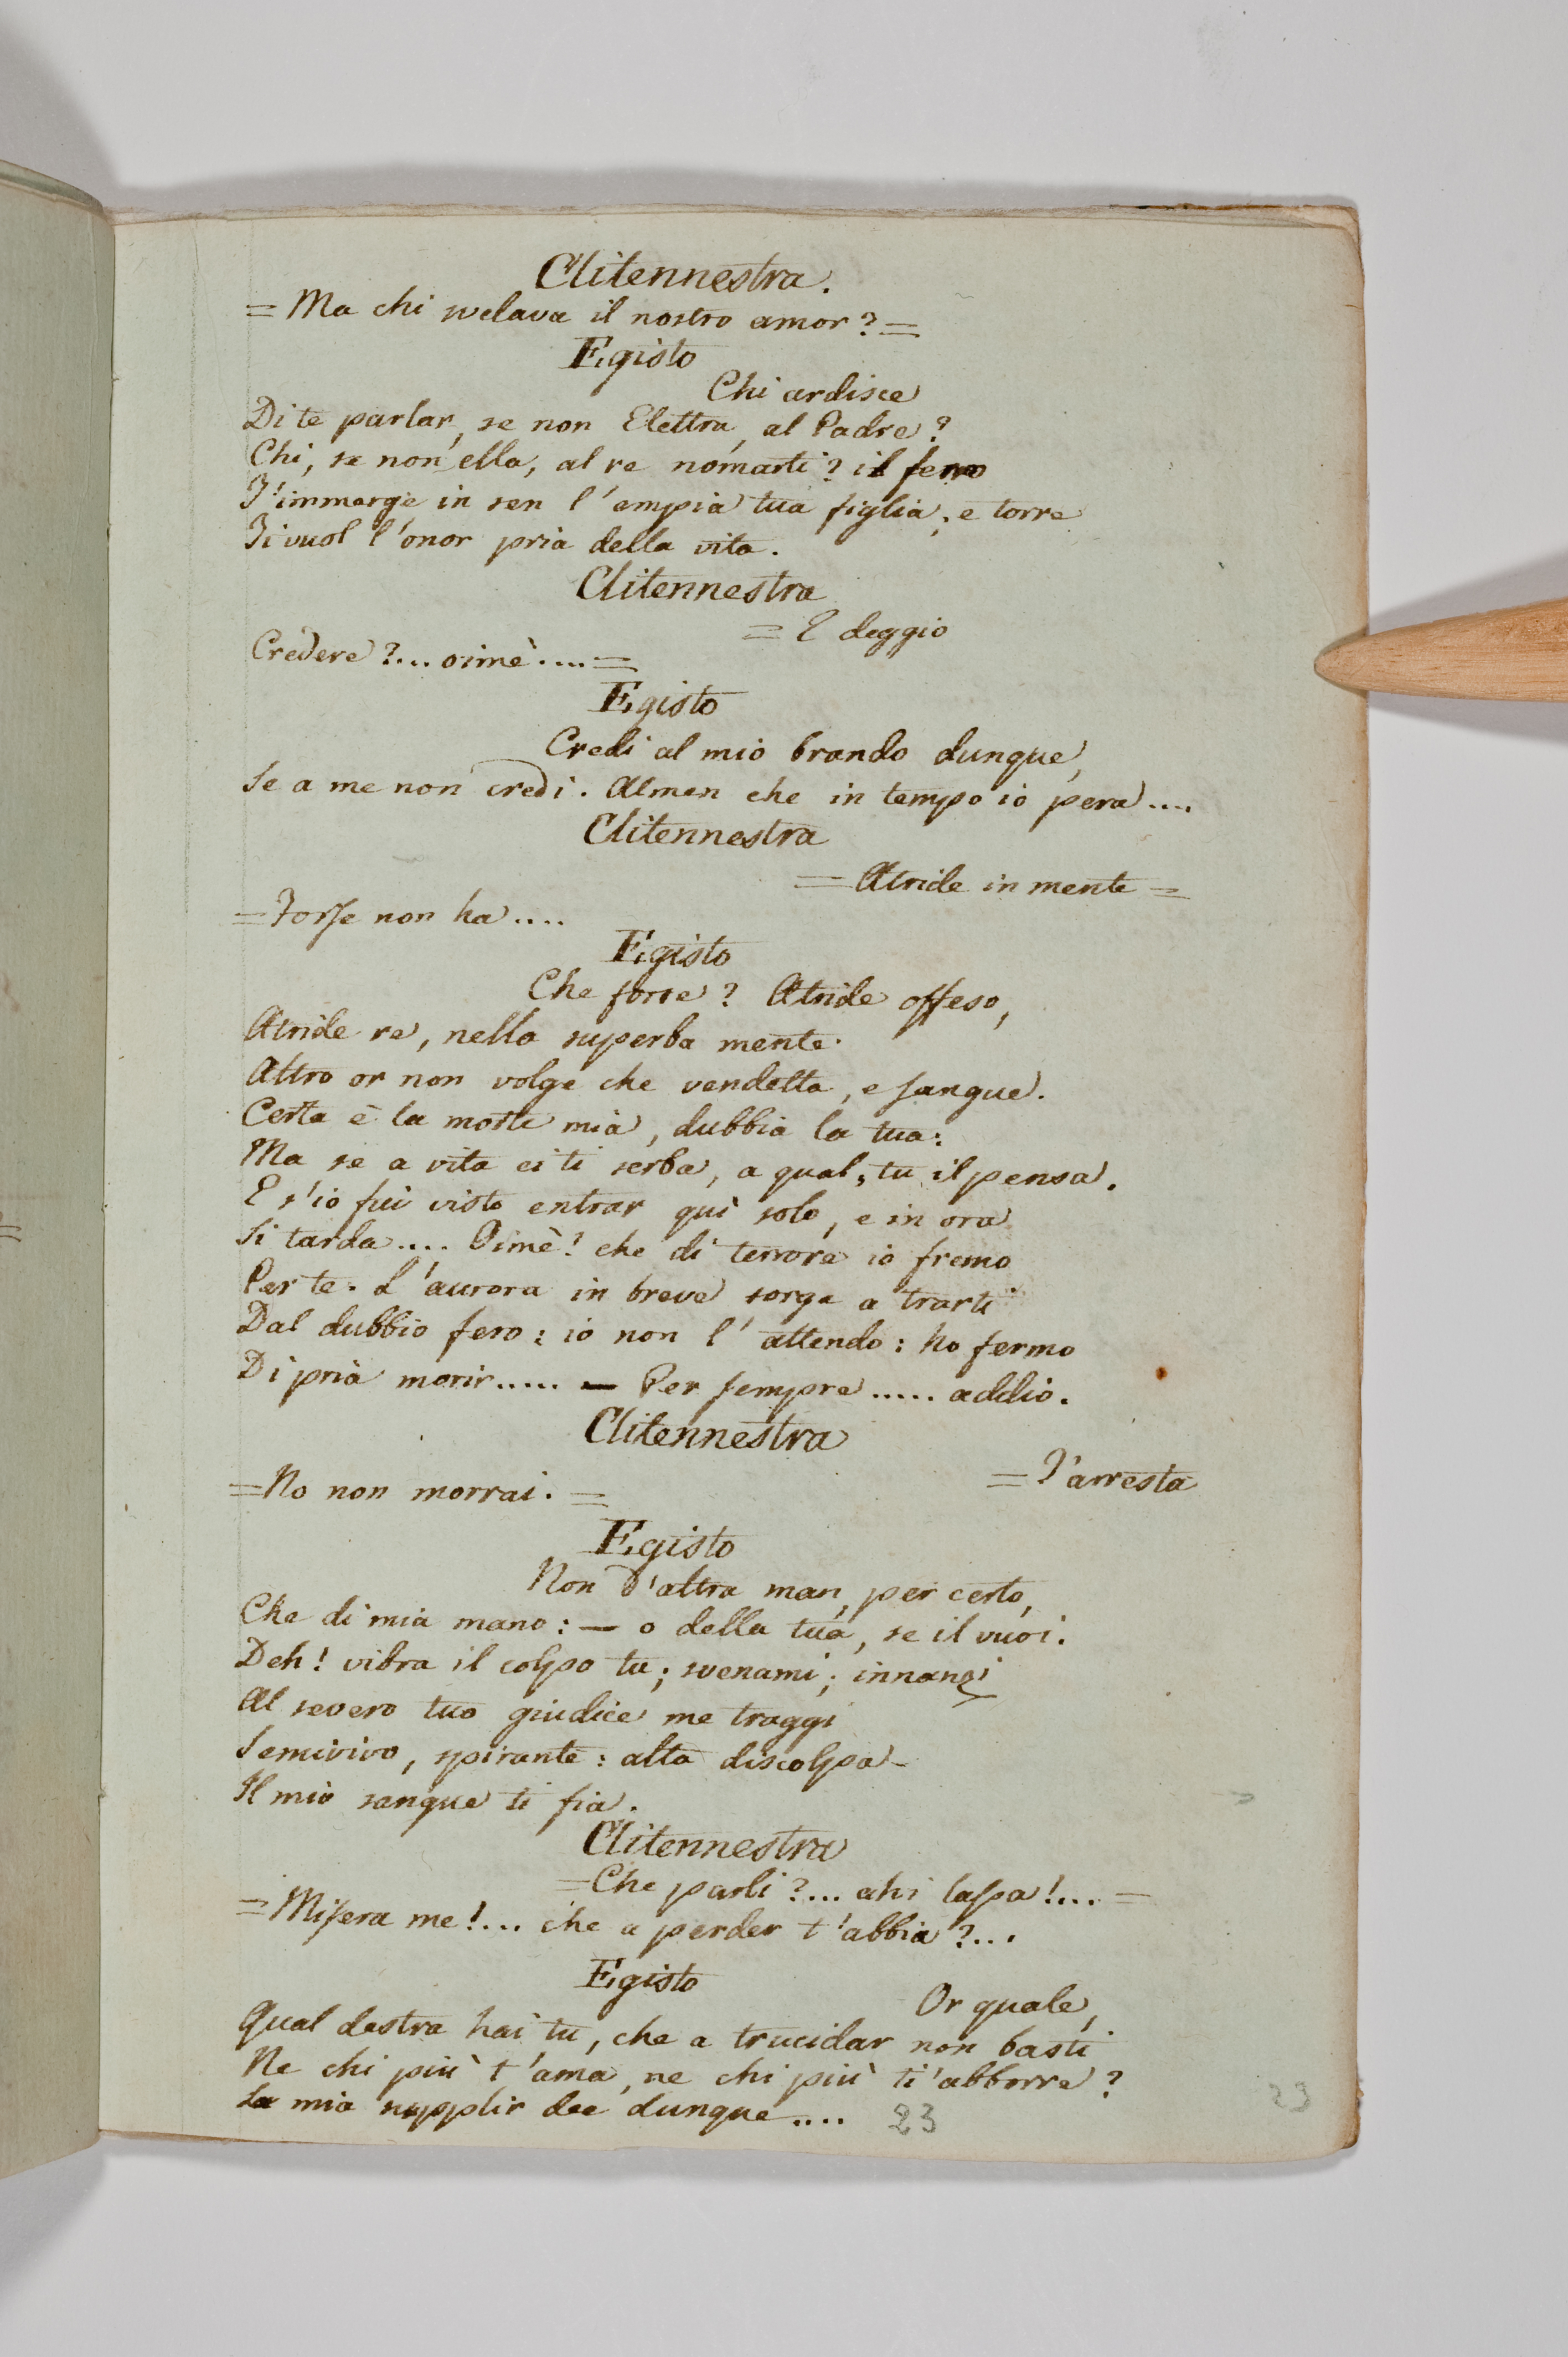 Clitennestra.
= Ma chi svelava il nostro amor? =
Egisto
Chi ardisce
Di te parlar, se non Elettra, al Padre?
Chi, se non ella, al re nomarti? il ferro
T'immerge in sen l'empia tua figlia; e torre
Ti vuol l'onor pria della vita.
Clitennestra
= E deggio
Credere?... oimè.... =
Egisto
Credi al mio brando dunque,
Se a me non credi. Almen che in tempo io pera....
Clitennestra
= Atride in mente =
= Forse non ha....
Egisto
Che forse? Atride offeso,
Atride re, nella superba mente.
Altro or non volge che vendetta, e sangue.
Certa è la morte mia, dubbia la tua:
Ma se a vita ei ti serba, a qual, tu il pensa.
E s'io fui visto entrar quì solo, e in ora
Si tarda.... Oimè! che di terrore io fremo
Per te. L'aurora in breve sorge a trarti
Dal dubbio fero: io non l'attendo: ho fermo
Di pria morir..... — Per sempre..... addio.
Clitennestra
= T'arresta
= No non morrai. =
Egisto
Non d'altra man, per certo,
Che di mia mano: — o della tua, se il vuoi.
Deh! vibra il colpo tu; svenami; innanzi
Al severo tuo giudice me traggi
Semivivo, spirante: alta discolpa
Il mio sangue ti fia.
Clitennestra
= Che parli?... ahi lassa!.... =
= Misera me!... che a perder t'abbia?...
Egisto
Or quale,
Qual destra hai tu, che a trucidar non basti
Ne chi più t'ama, ne chi più ti'abborre?
La mia supplir dee dunque....
23
23